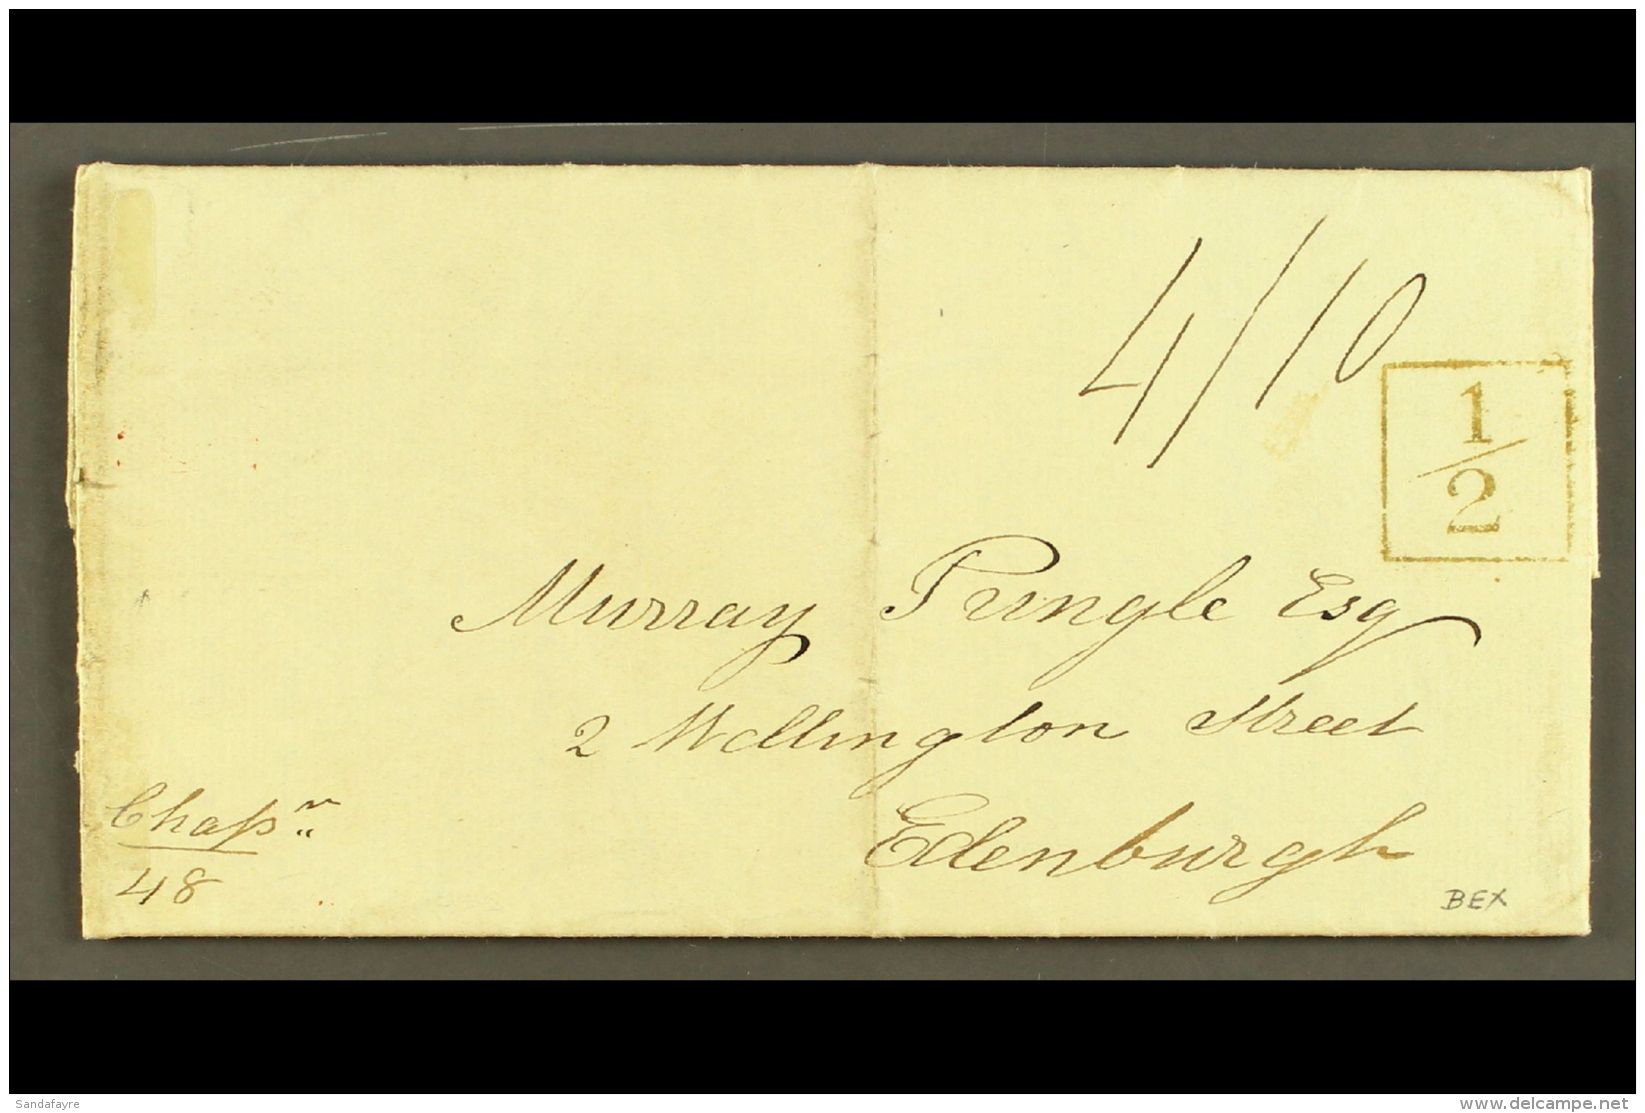 4/10
1/2
Murray Pringle Esq
2 Wellington Street
Edenburgh
48
BEX
Sandafayre
www.delcampe.net